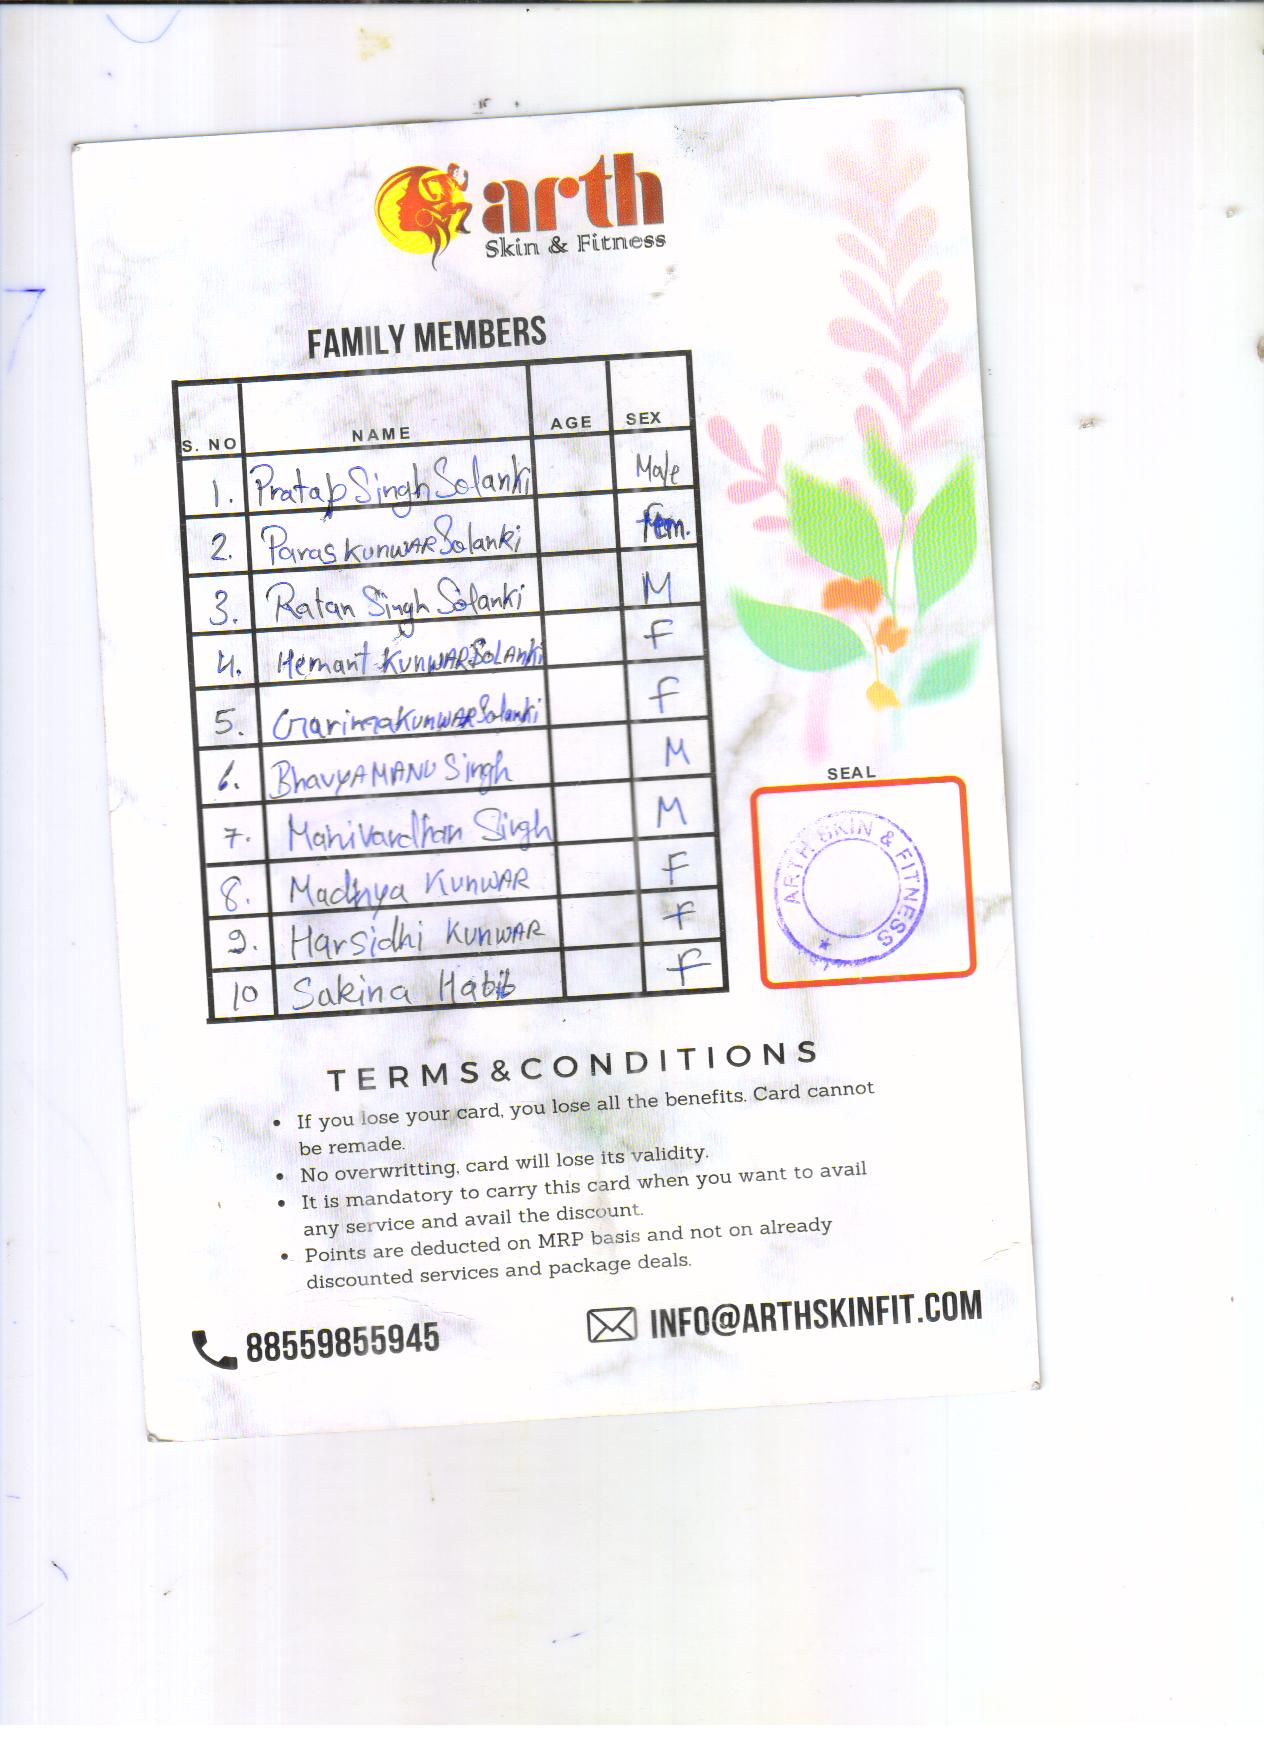 arth
Skin & Fitness
FAMILY MEMBERS
S. NO NAME AGE SEX
1. Pratap Singh Solanki Male
2. Paras KUNWAR Solanki Fem.
3. Ratan Singh Solanki M
4. Hemant KUNWAR SOLANKi F
5. Garima KUNWAR Solanki F
6. BhavyAMANU Singh M
7. Mahivardhan Singh M
8. Madhya KUNWAR F
9. Harsidhi KUNWAR F
10 Sakina Habib F
SEAL
ARTH SKIN & FITNESS
TERMS&CONDITIONS
• If you lose your card, you lose all the benefits. Card cannot
be remade.
• No overwritting, card will lose its validity.
• It is mandatory to carry this card when you want to avail
any service and avail the discount.
• Points are deducted on MRP basis and not on already
discounted services and package deals.
88559855945
INFO@ARTHSKINFIT.COM